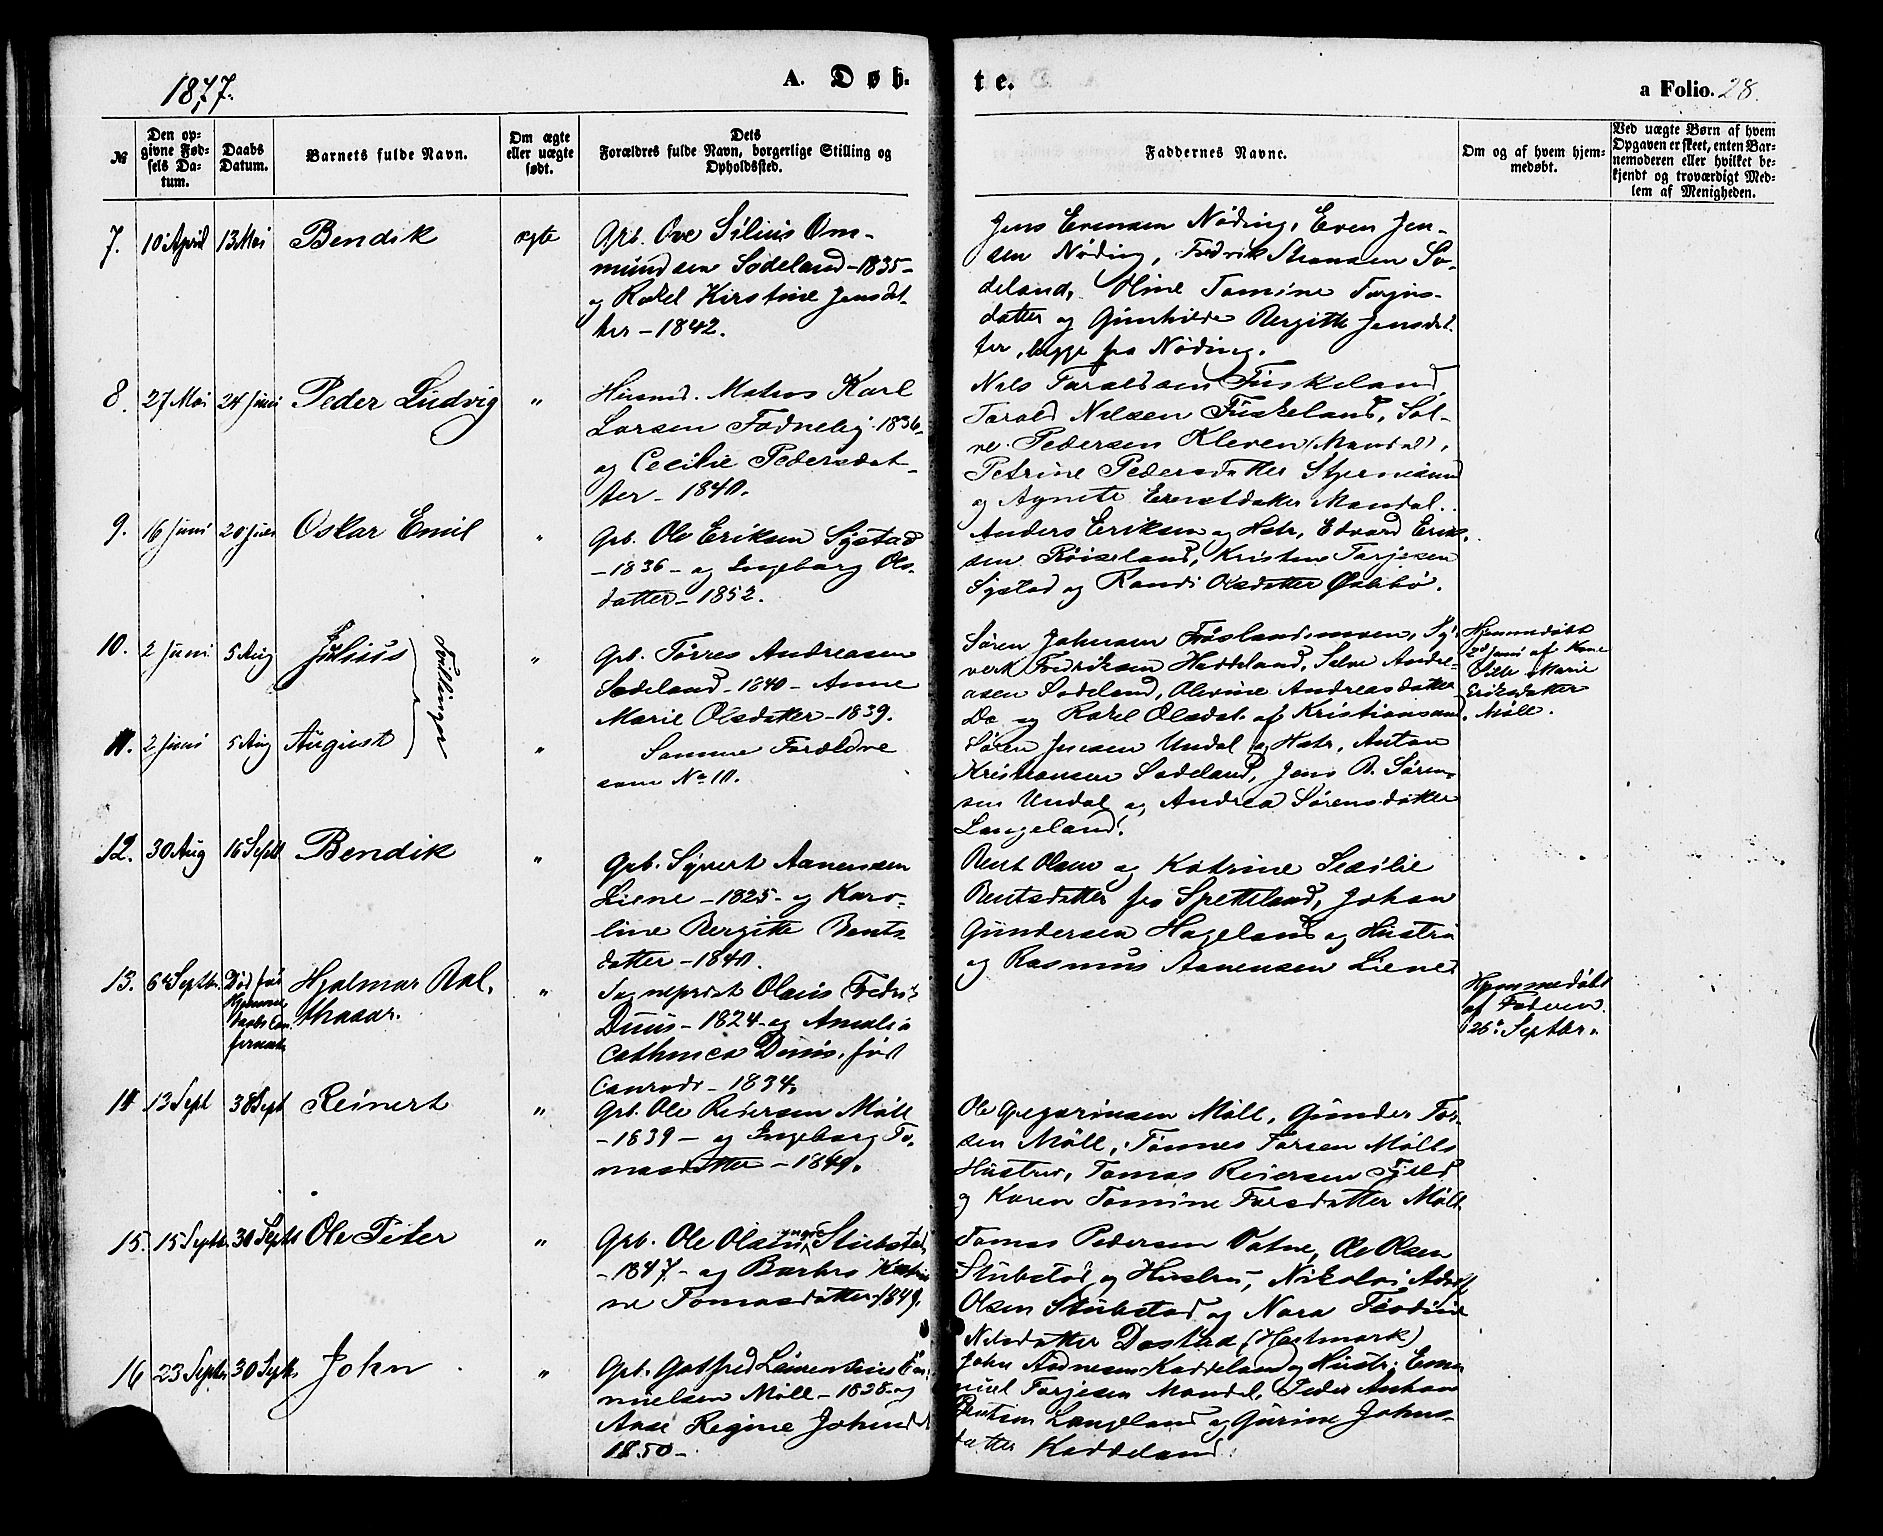 1877.
A. Døb-
te.
a Folio. 28.
№
Den op-
givne Fød-
sels Da-
tum.
Daabs
Datum.
Barnets fulde Navn.
Om ægte
eller uægte
født.
Dets
Forældres fulde Navn, borgerlige Stilling og
Opholdssted.
Faddernes Navne.
Om og af hvem hjem-
medøbt.
Ved uægte Børn af hvem
Opgaven er skeet, enten Bar-
nemoderen eller hvilket be-
kjendt og troværdigt Med-
lem af Menigheden.
7. 10 April 13 Mai Bendik ægte
Grb. Ove Silius Om-
mundsen Sodeland - 1835 -
og Rakel Kirstine Jensdat-
ter - 1842.
Jens Evensen Nøding, Even Jen-
sen Nøding, Fredrik So-
deland, Oline Tomine Torjus-
datter og Gunhilde Bergitte Jensdat-
ter, begge fra Nøding.
8. 27 Mai 24 Juni Peder Ludvig "
Husmd. Matros Karl
Larsen 1836 -
og Cecilie Pedersdat-
ter - 1840.
Nils Taraldsen Fuskeland,
Tarald Nilsen Fuskeland, Sal-
ve Pedersen Kleven (Mandal),
Petrine Pedersdatter Stjernesund
og Agnete Erentdatter Mandal.
9. 16 Juni 20 Juli Oskar Emil "
Grb. Ole Eriksen Systad
- 1836 - og Ingeborg Ols-
datter - 1852.
Anders Eriksen og Hstr, Edvard Erik-
sen Røiseland, Kristen Torjesen
Systad og Randi Olsdatter Øslebø.
10. 2 Juni 5 Aug Julius "
Tvillinger
Grb. Tørres Andreasen
Sodeland - 1840 - Anne
Marie Olsdatter - 1839.
Søren Johnsen Frøslandsmoen, Sy-
vert Fredriksen Haddeland, Salve Andre-
asen Sodeland, Olevine Andreasdatter
Do og Rakel Olsdat. af Kristiansand.
Hjemmedøbt
2d Juni af Kone
Sille Marie
Eriksdatter
Møll.
11. 2 Juni 5 Aug August "
Samme Forældre
som No 10.
Søren Jensen Undal og Hstr, Anton
Kristiansen Sodeland, Jens B. Søren-
sen Undal og Andrea Sørensdatter
Langeland.
12. 30 Aug 16 Septr Bendik "
Grb. Syvert Aanensen
Liene - 1825 - og Karo-
line Bergitte Bents-
datter - 1840.
Bent Olsen og Katrine Sesilie
Bentsdatter fra Spetteland, Johan
Gundersen Hageland og Hustru
og Rasmus Aanensen Liene
13. 6te Septbr. Død før
Hjemme-
daabs Con-
firmat. Hjalmar Bal-
thasar. "
Sogneprest Olaus Fredr.
Duus - 1824 - og Amalia
Cathinca Duus, født
Conradi - 1834.
Hjemmedøbt
af Faderen
26de Septbr.
14 13 Sept 38 Sept Reinert "
Grb. Ole Reiersen Møll
- 1839 - og Ingeborg To-
masdatter - 1849.
Ole Gregoriusen Møll, Gunder Tor-
sen Møll, Tønnes Torsen Mølls
Hustru, Tomas Reiersen Fjeld
og Karen Tomine Torsdatter Møll.
15. 15 Septbr. 30 Septbr Ole Peter "
Grb. Ole Olsen yngre Stubstad
- 1847 - og Barbro Katri-
ne Tomasdatter - 1849.
Tomas Pedersen Vatne, Ole Olsen
Stubstad og Hustru, Nikolai Adolf
Olsen Stubstad og Nora Teodine
Nilsdatter Dastad (Hartmark)
16 23 Septbr 30 Septbr John "
Grb. Gotfred Laurentius Em-
nuelsen Møll - 1838 - og
Aase Regine Johnsd.
1850 -
John Aadnesen Kaddeland og Hustr, Ema-
nuel Torjesen Mandal, Peder Anton
Bentsen Langeland og Gurine Johns-
datter Kaddeland.